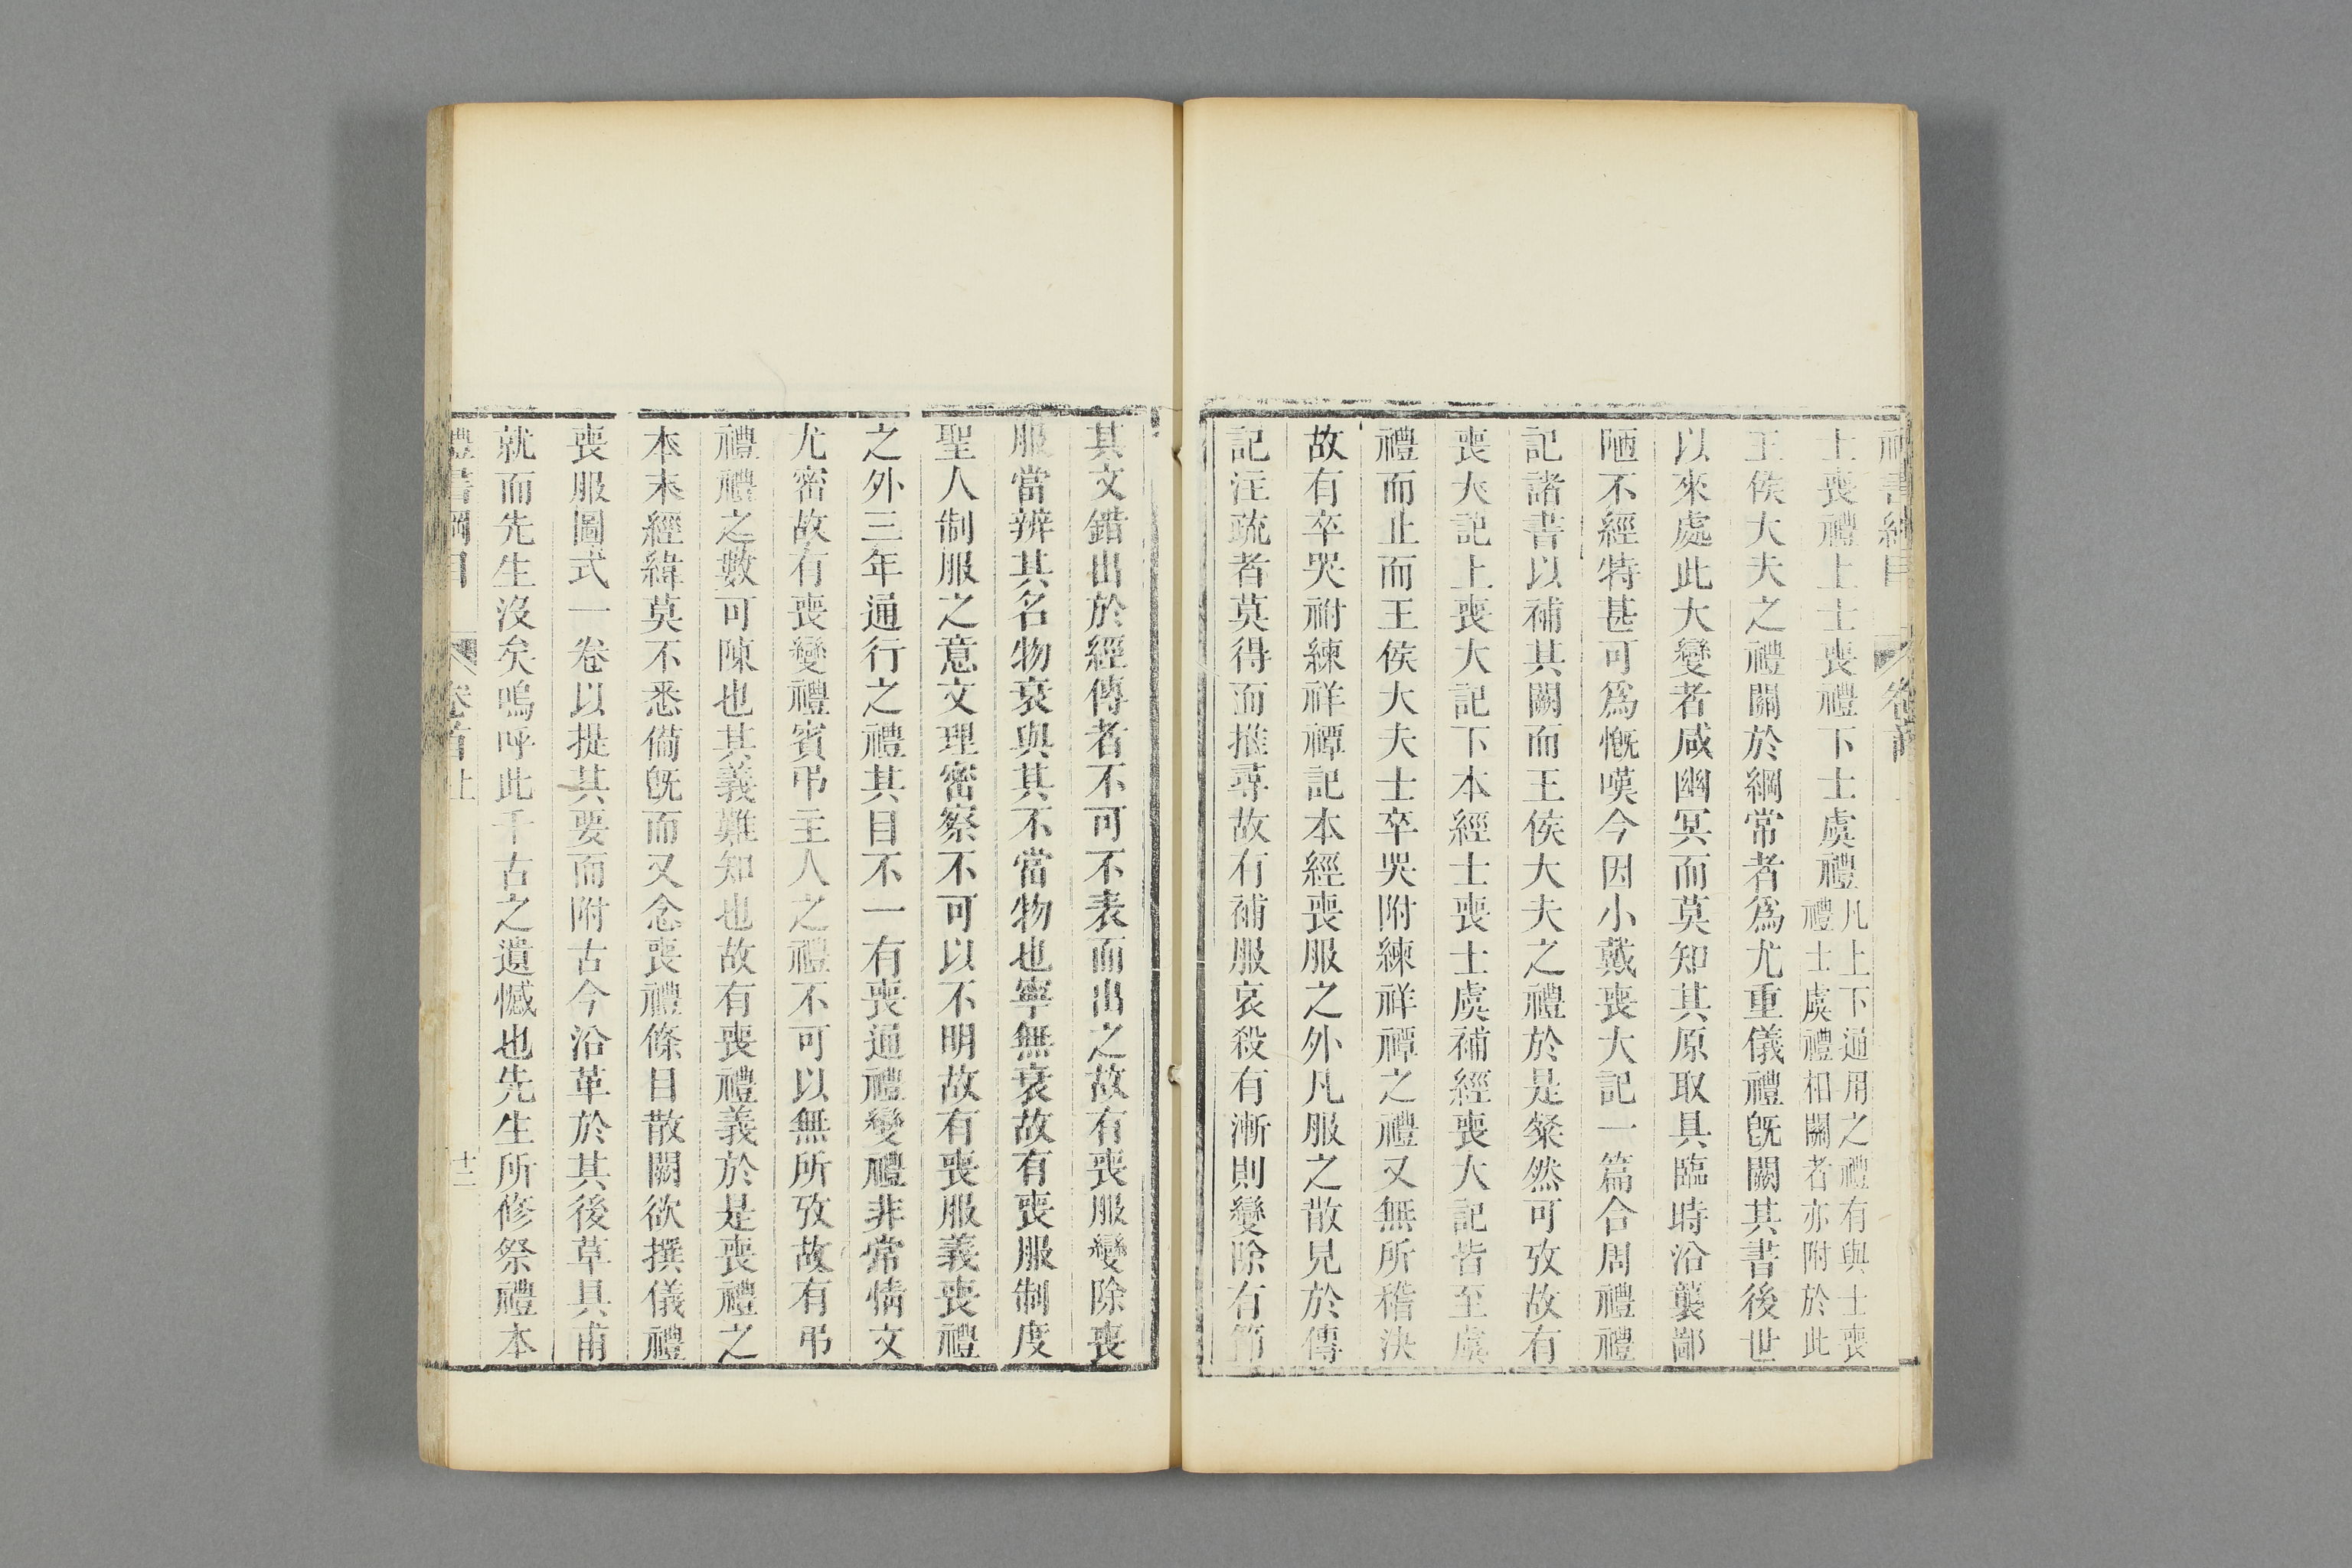 士喪禮上士喪禮下士虞禮凡上下通用之禮有與士喪禮士虞禮相關者亦附於此
王侯大夫之禮關於綱常者爲尤重儀禮旣闕其書後世
以來處此大變者咸幽冥而莫知其原取具臨時沿襲鄙
陋不經特甚可爲慨嘆今因小戴喪大記一篇合周禮禮
記諸書以補其闕而王侯大夫之禮於是粲然可攷故有
喪大記上喪大記下本經士喪士虞補經喪大記皆至虞
禮而止而王侯大夫士卒哭附練祥禫之禮又無所稽決
故有卒哭祔練祥禫記本經喪服之外凡服之散見於傳
記注疏者莫得而推尋故有補服哀殺有漸則變除有節
其文錯出於經傳者不可不表而出之故有喪服變除喪
服當辨其名物衰與其不當物也寧無衰故有喪服制度
聖人制服之意文理密察不可以不明故有喪服義喪禮
之外三年通行之禮其目不一有喪通禮變禮非常情文
尤密故有喪變禮賓弔主人之禮不可以無所攷故有弔
禮禮之數可陳也其義難知也故有喪禮義於是喪禮之
本末經緯莫不悉備旣而又念喪禮條目散闕欲撰儀禮
喪服圖式一卷以提其要而附古今沿革於其後草具甫
就而先生沒矣嗚呼此千古之遺憾也先生所修祭禮本
禮書綱目 卷首上 十二